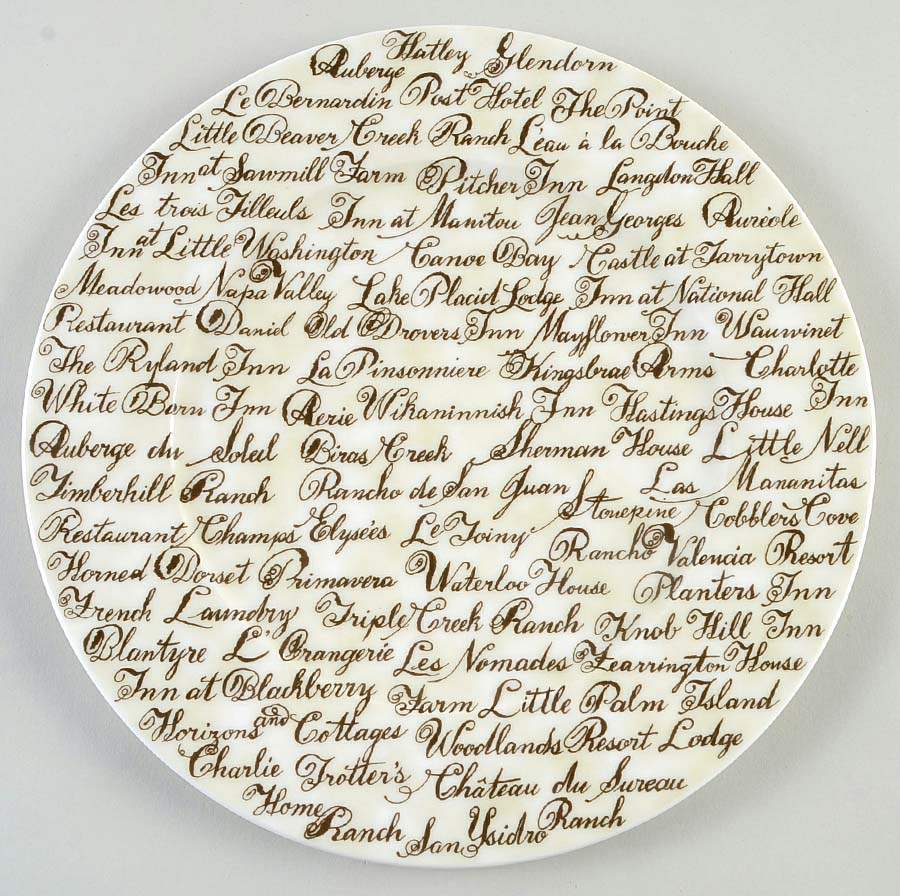 Auberge Hatley Glendorn
Le Bernardin Post Hotel The Point
Little Beaver Creek Ranch L'eau à la Bouche
Inn at Sawmill Farm Pitcher Inn Langdon Hall
Les trois Tilleuls Inn at Manitou Jean Georges Auréole
Inn at Little Washington Canoe Bay Castle at Tarrytown
Meadowood Napa Valley Lake Placid Lodge Inn at National Hall
Restaurant Daniel Old Drovers Inn Mayflower Inn Wauwinet
The Ryland Inn La Pinsonniere Kingsbrae Arms Charlotte
White Barn Inn Aerie Wikaninnish Inn Hastings House Inn
Auberge du Soleil Biras Creek Sherman House Little Nell
Timberhill Ranch Rancho de San Juan Las Mananitas
Restaurant Champs Elyseés Le Toiny Stonepine Cobblers Cove
Horned Dorset Primavera Waterloo House Rancho Valencia Resort
French Laundry Triple Creek Ranch Planters Inn
Blantyre L'Orangerie Les Nomades Knob Hill Inn
Inn at Blackberry Farm Fearrington House
Horizons and Cottages Little Palm Island
Charlie Trotter's Woodlands Resort Lodge
Home Ranch Château du Sureau
San Ysidro Ranch